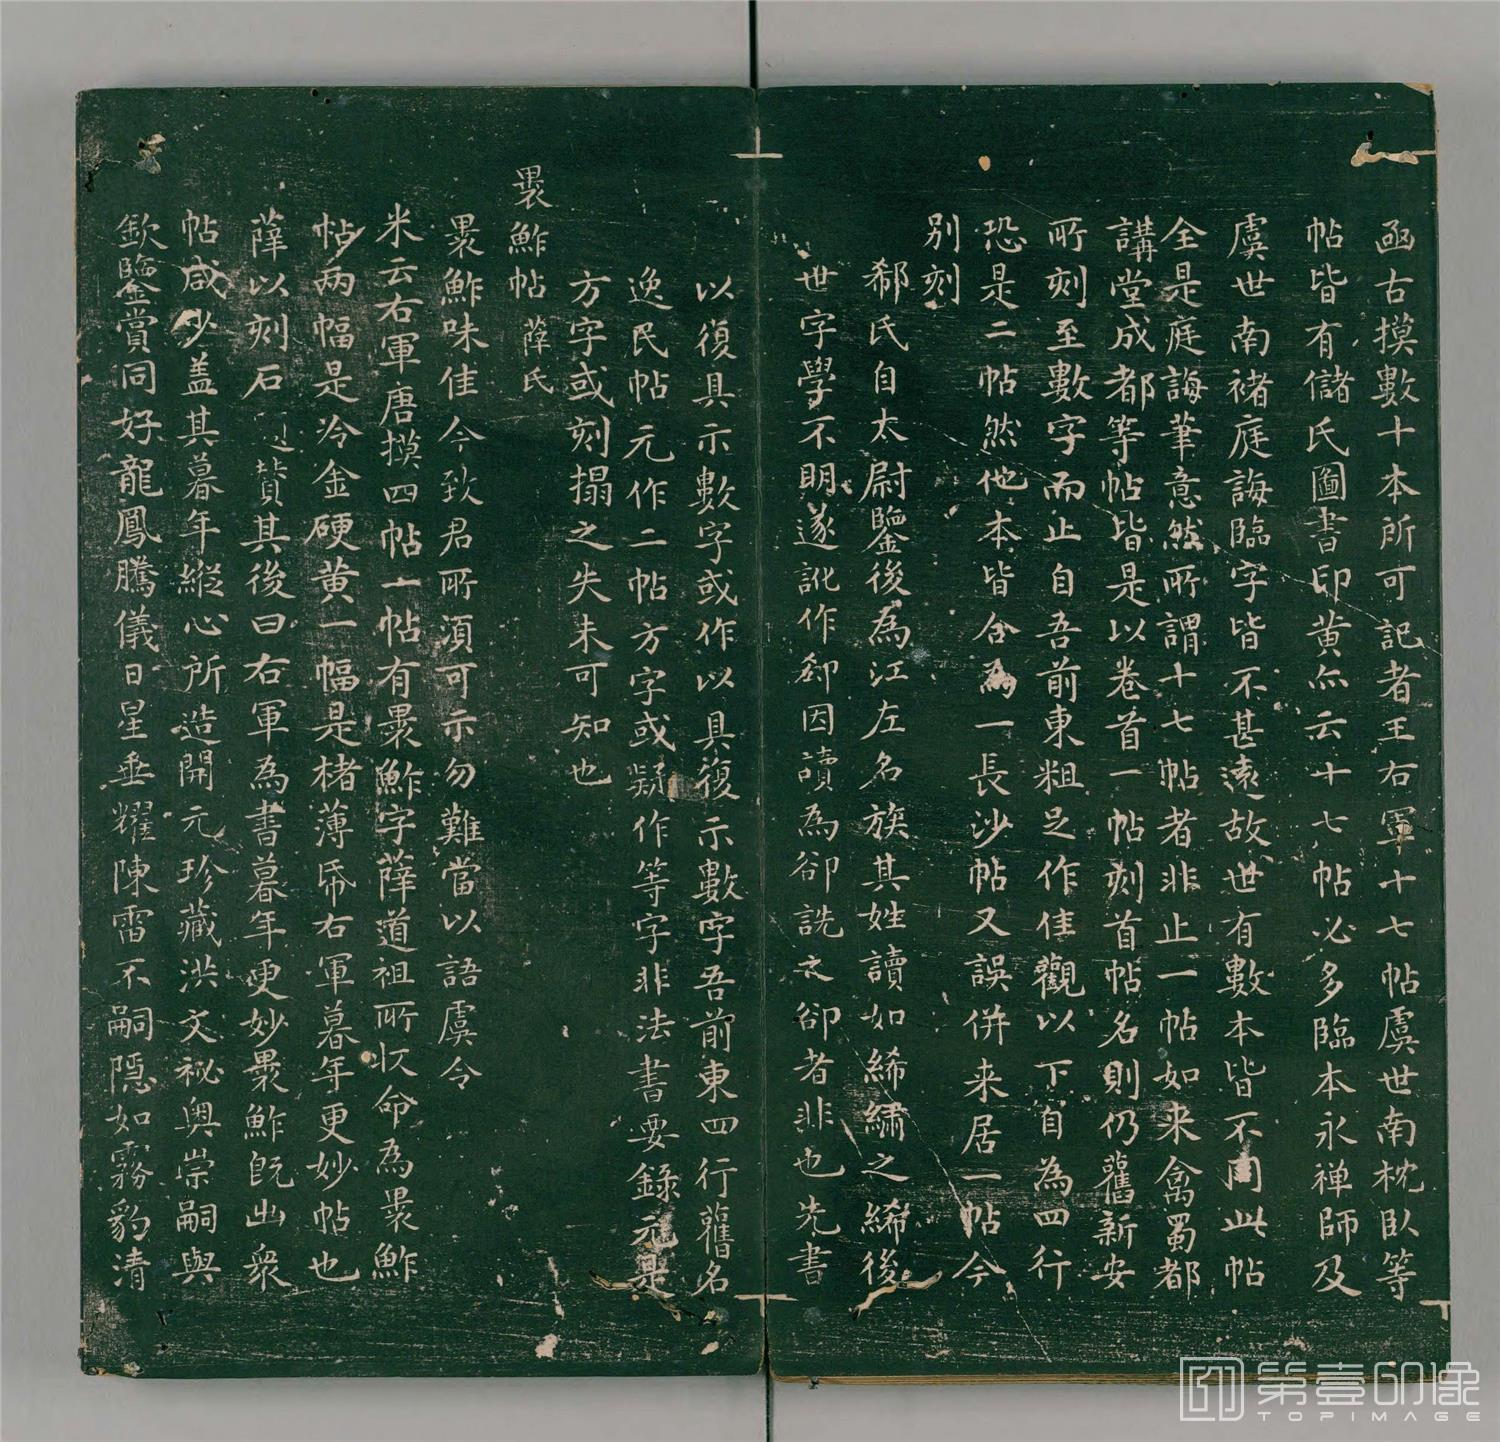 函古摸數十本所可記者王右軍十七帖虞世南枕臥等
帖皆有儲氏圖書印黄亦云十七帖必多臨本永禅師及
虞世南褚庭誨臨字皆不甚遠故世有數本皆不同此帖
全是庭誨筆意然所謂十七帖者非止一帖如来禽蜀都
講堂成都等帖皆是以卷首一帖刻首帖名則仍舊新安
所刻至數字而止自吾前東粗足作佳觀以下自為四行
恐是二帖然他本皆合為一長沙帖又誤併来居一帖今
別刻
郗氏自太尉鑒後為江左名族其姓讀如絺繡之絺後
世字學不明遂訛作郄因讀為郤詵之郤者非也先書
以復具示數字或作以具復示數字吾前東四行舊名
逸民帖元作二帖方字或疑作等字非法書要錄元是
方字或刻搨之失未可知也
褁鮓帖 薛氏
褁鮓味佳今致君所須可示勿難當以語虞令
米云右軍唐摸四帖一帖有褁鮓字薛道祖所收命為褁鮓
帖两幅是冷金硬黄一幅是楮薄帋右軍暮年更妙帖也
薛以刻石 賛其後曰右軍為書暮年更妙褁鮓既出衆
帖咸少盖其暮年縱心所造開元珍藏洪文祕奥崇嗣與
歓鑒賞同好龍鳳騰儀日星垂耀陳雷不嗣隠如霧豹清
第壹印像
TOPIMAGE